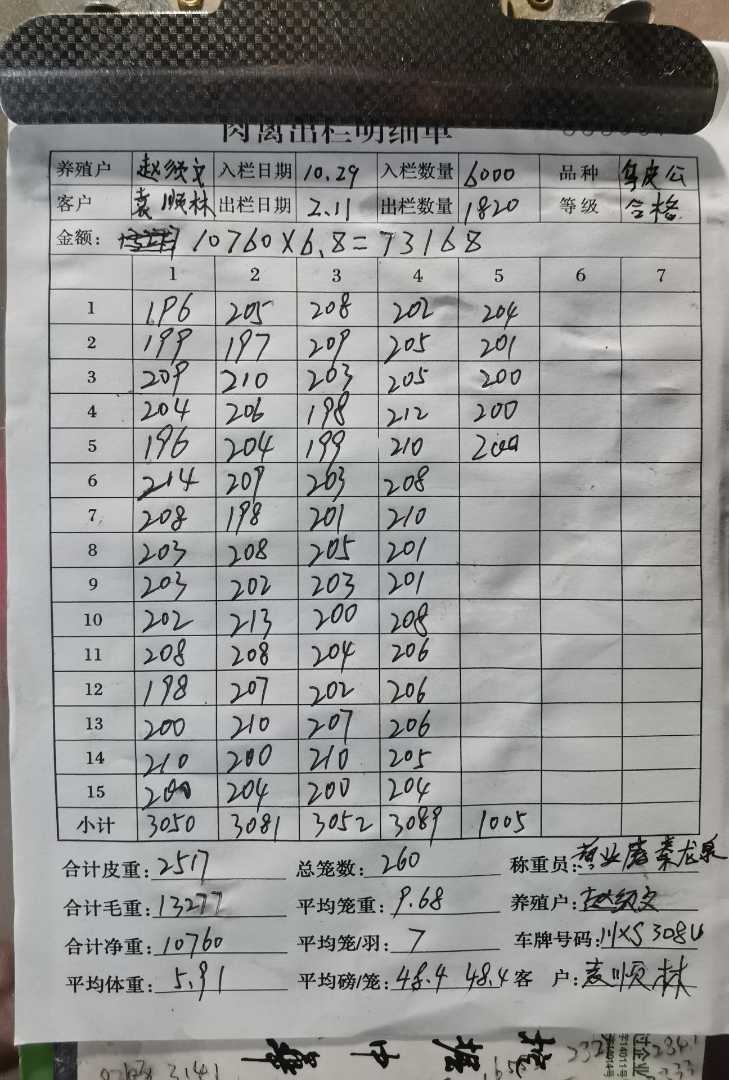 肉禽出栏明细单
养殖户 赵须文 入栏日期 10.29 入栏数量 6000 品种 皮公
客户 袁顺林 出栏日期 2.11 出栏数量 1820 等级 合格
金额: 10760×6.8=73168
1 2 3 4 5 6 7
1 196 205 208 202 204
2 199 197 209 205 201
3 209 210 203 205 200
4 204 206 198 212 200
5 196 204 199 210 200
6 214 209 203 208
7 208 198 201 210
8 203 208 205 201
9 203 202 203 201
10 202 213 200 208
11 208 208 204 206
12 198 207 202 206
13 200 210 207 206
14 210 200 210 205
15 200 204 200 204
小计 3050 3081 3052 3089 1005
合计皮重: 2517 总笼数: 260 称重员: 秦龙泉
合计毛重: 13277 平均笼重: 9.68 养殖户: 赵须文
合计净重: 10760 平均笼/羽: 7 车牌号码: 川XS308U
平均体重: 5.91 平均磅/笼: 48.4 48.4 客 户: 袁顺林